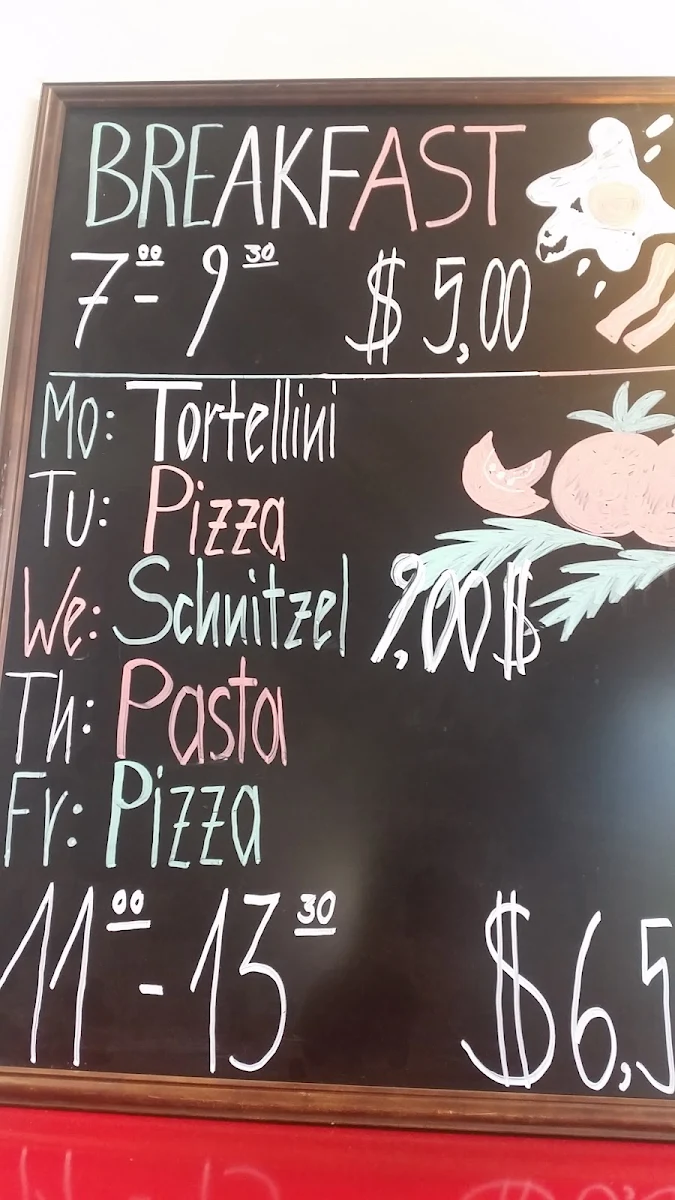 BREAKFAST
7⁰⁰ - 9³⁰ $ 5,00
Mo: Tortellini
Tu: Pizza
We: Schnitzel 9,00 $
Th: Pasta
Fr: Pizza
11⁰⁰ - 13³⁰ $ 6,5